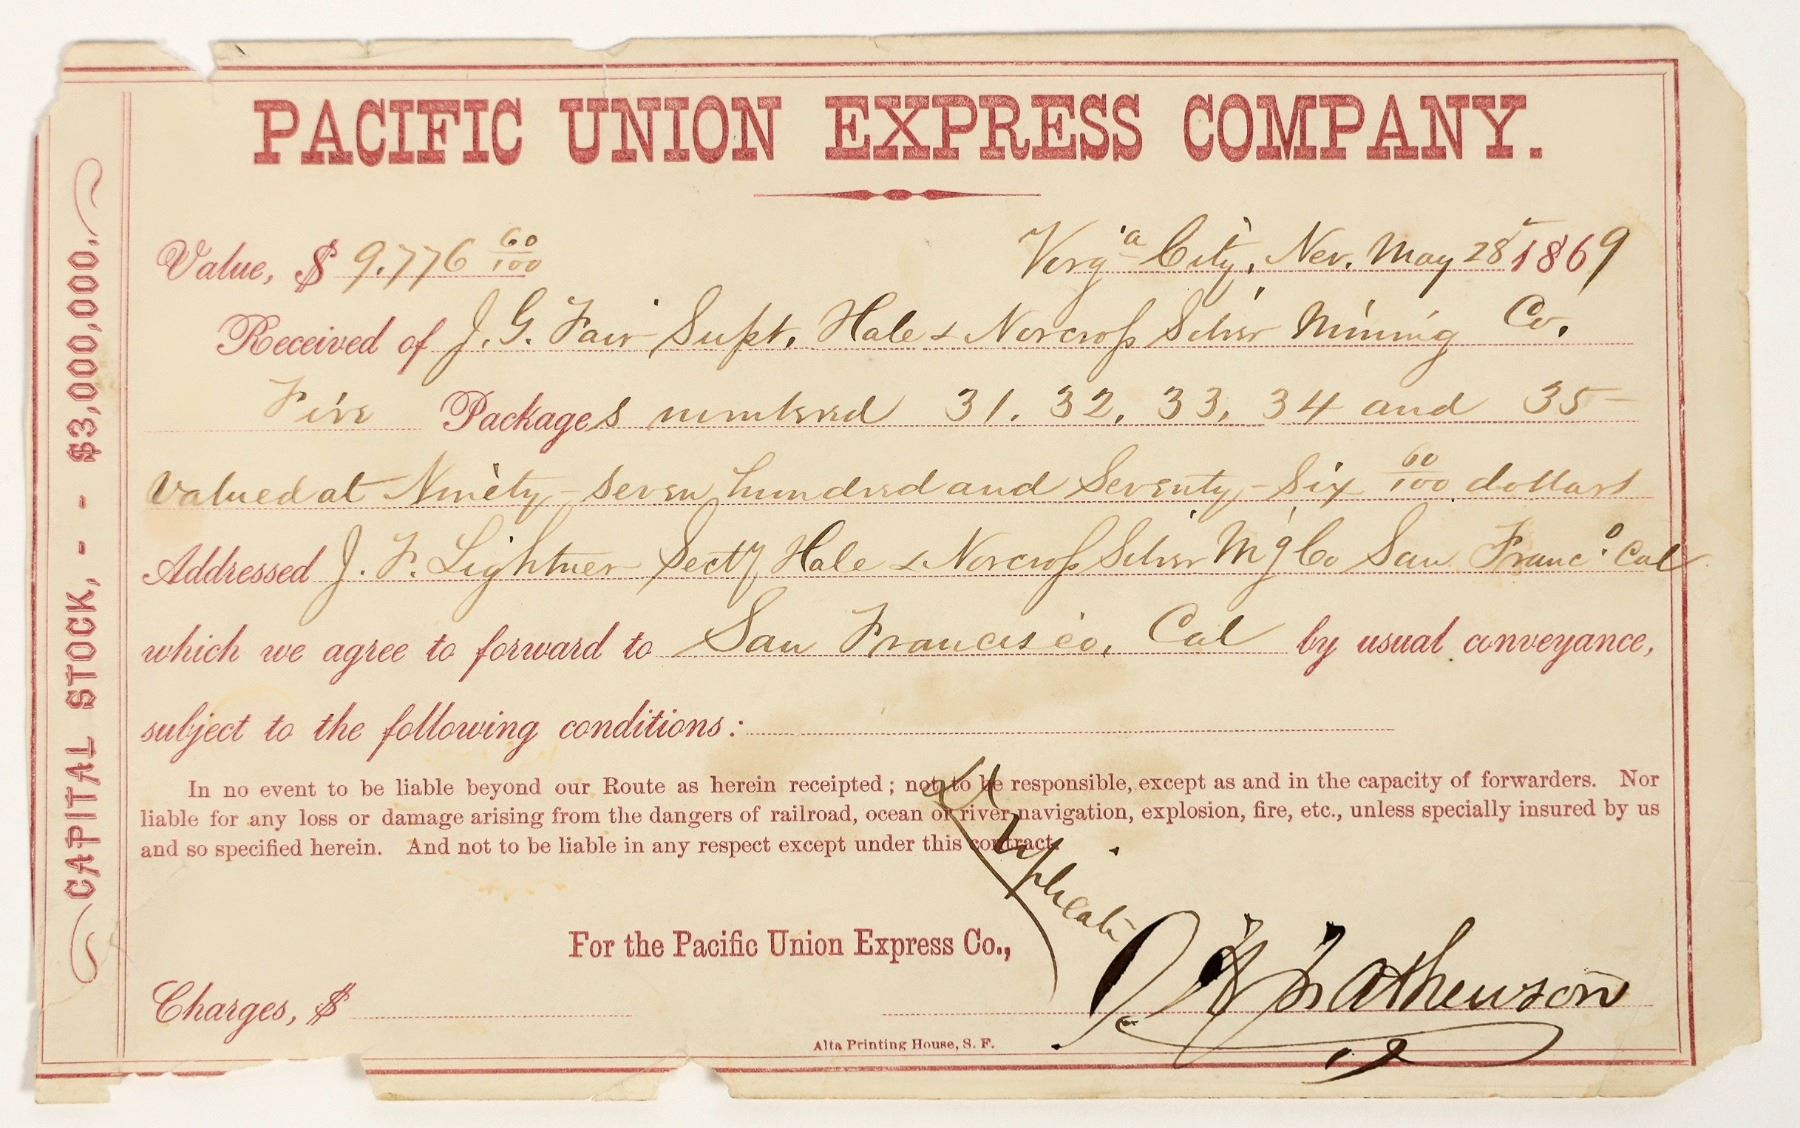 PACIFIC UNION EXPRESS COMPANY.
CAPITAL STOCK, - - $3,000,000.
Value, $ 9.776 60/100 Virg'a City, Nev. May 28 1869
Received of J. G. Fair Supt. Hale & Norcross Silver Mining Co.
Five Packages numbered 31. 32. 33. 34 and 35
valued at Ninety-seven hundred and Seventy-Six 60/100 dollars
Addressed J. F. Lightner Secty Hale & Norcross Silver Mg Co San Franco. Cal
which we agree to forward to San Francisco, Cal by usual conveyance,
subject to the following conditions:
In no event to be liable beyond our Route as herein receipted; not to be responsible, except as and in the capacity of forwarders. Nor
liable for any loss or damage arising from the dangers of railroad, ocean or river navigation, explosion, fire, etc., unless specially insured by us
and so specified herein. And not to be liable in any respect except under this contract.
Duplicate
For the Pacific Union Express Co.,
Mathewson
Charges, $
Alta Printing House, S. F.